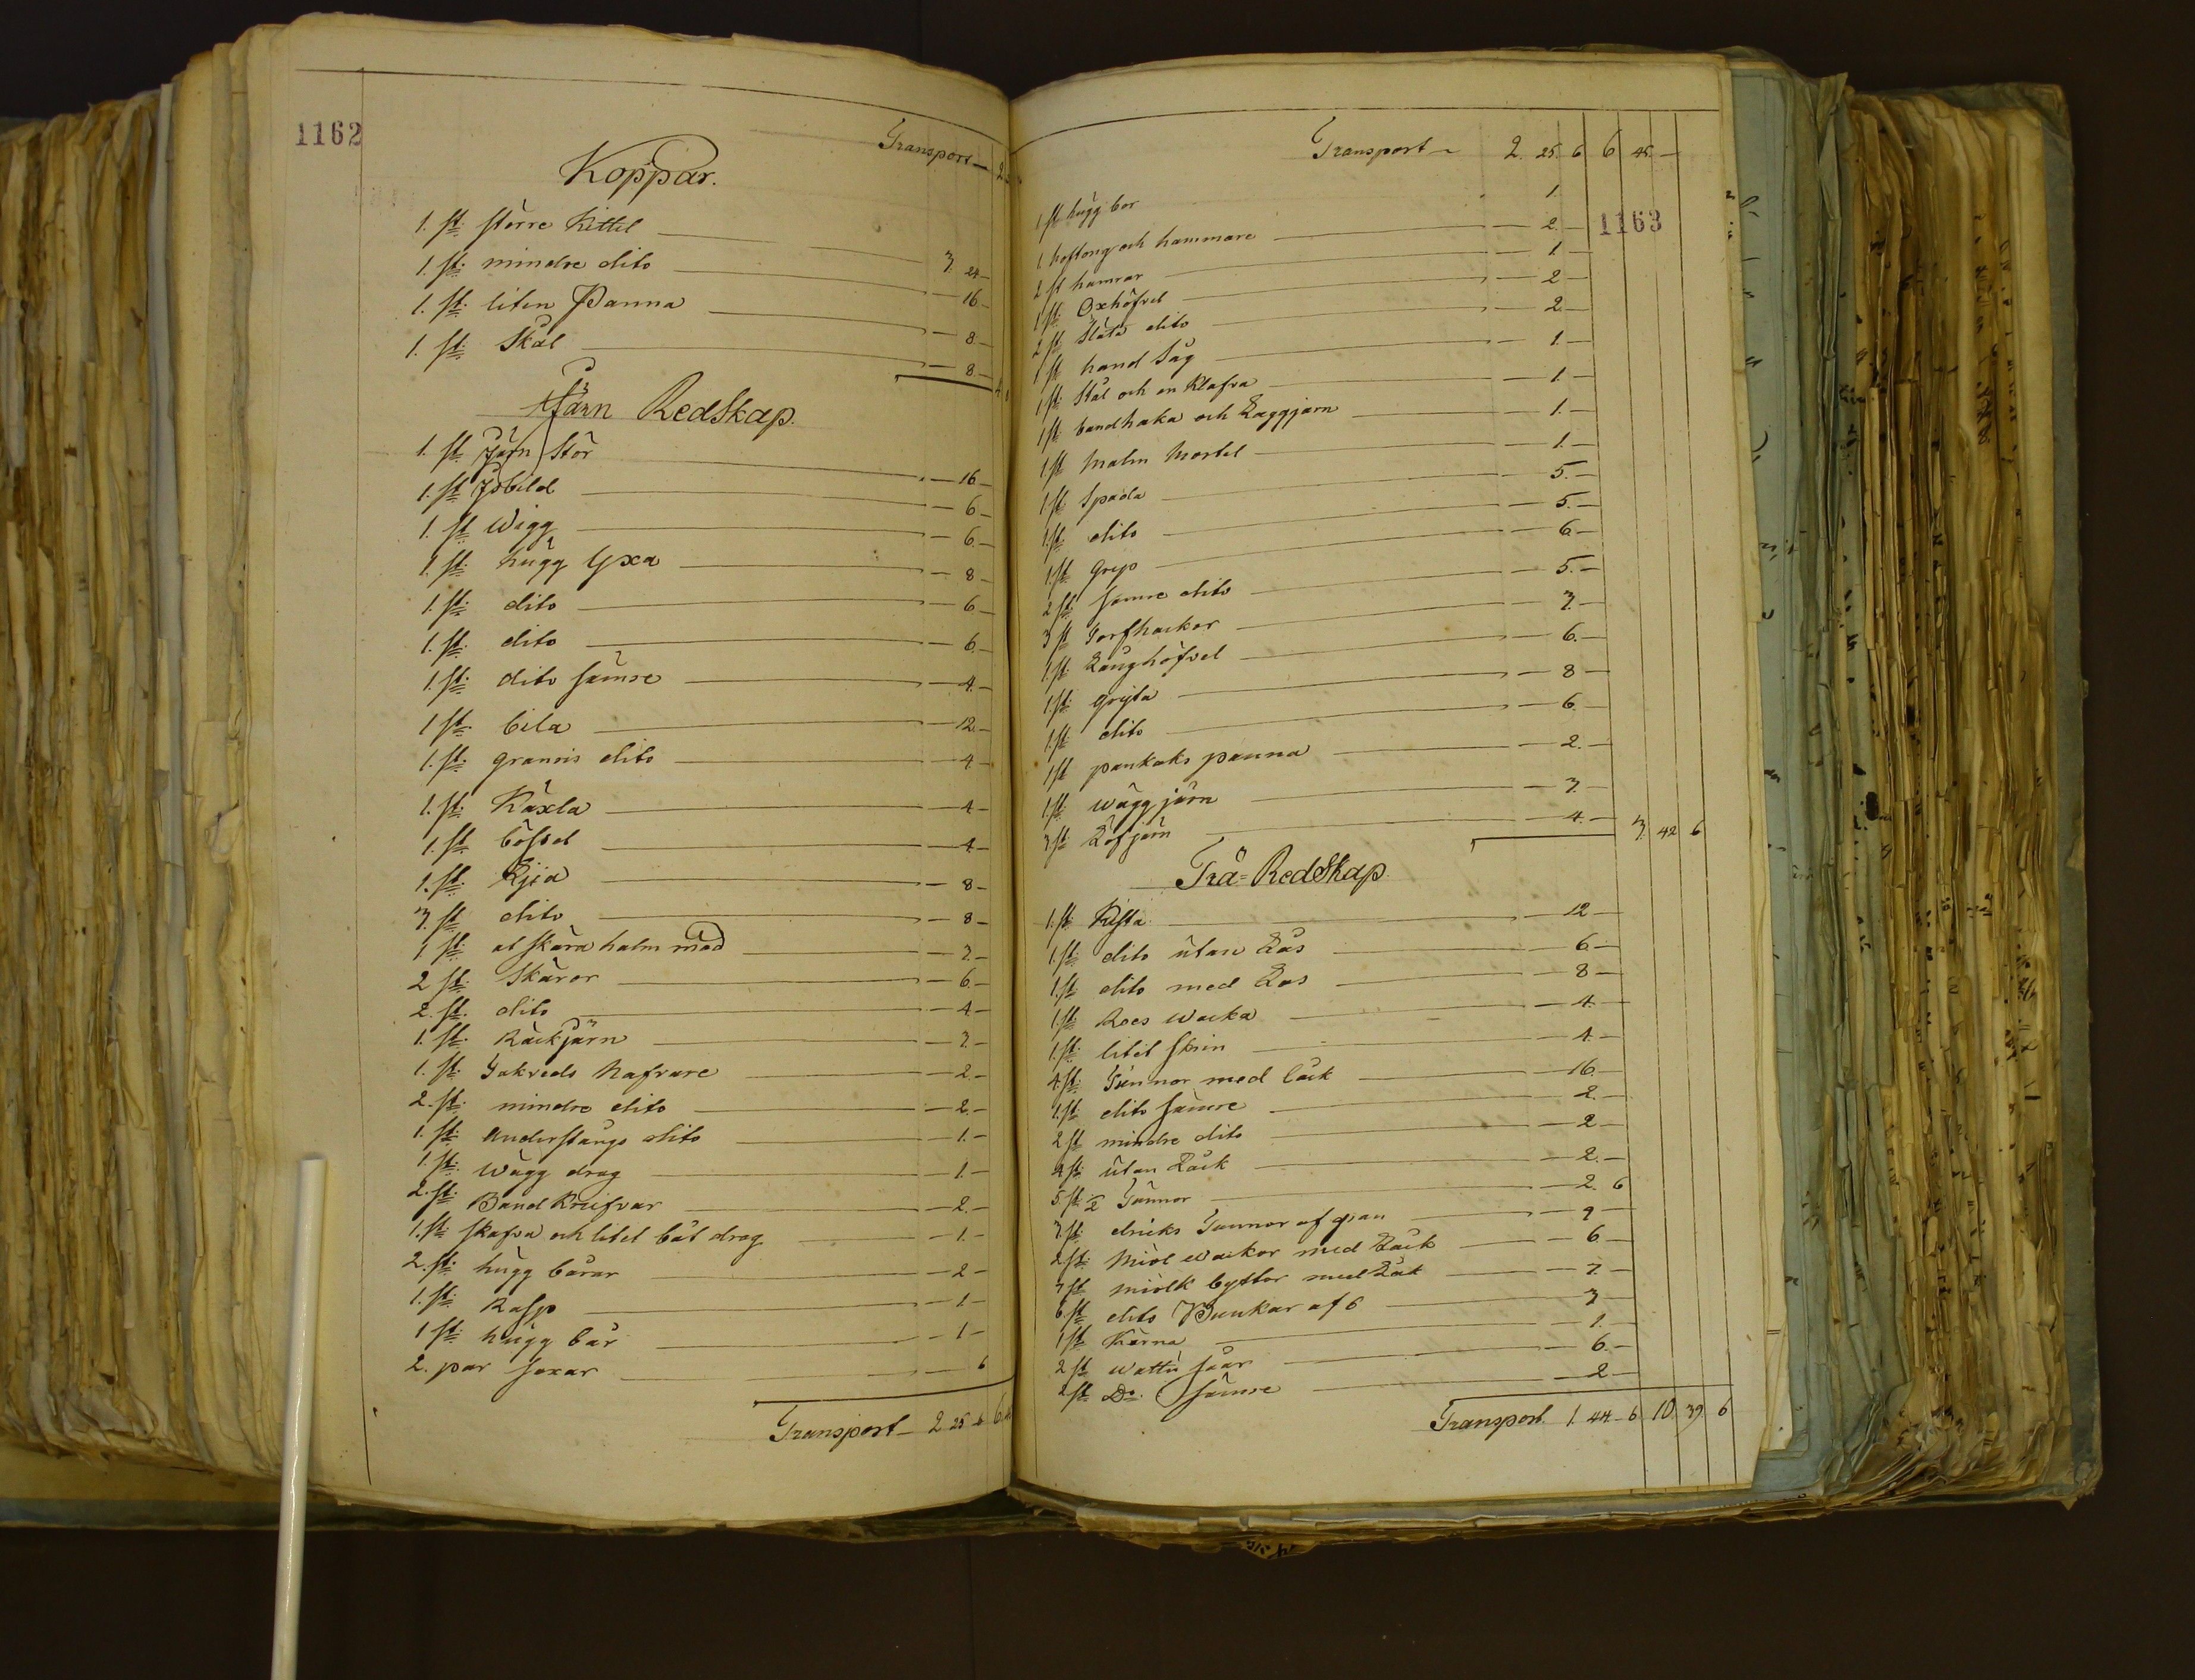 1162
Transport — 2
Koppar.
1. st. större Kittel — 3. 24 —
1. st. mindre dito — 16 —
1. st. liten Panna — 8 —
1. st. Skål — 8 —
Järn RedSkap.
1. st. Järn Stör — 16 —
1. st. Jsbild — 6 —
1. st. Wigg — 6 —
1. st. hugg Yxa — 8 —
1. st. dito — 6 —
1. st. dito — 6 —
1. st. dito sämre — 4 —
1 st. bila — 12 —
1. st. dito — 4 —
1. st. Käxla — 4 —
1. st. — 4 —
1. st. Ljia — 8 —
3. st. dito — 8 —
1 st. at skära halm med — 3 —
2 st. Skäror — 6 —
2. st. dito — 4 —
1. st. Räckjärn — 3 —
1. st. Nafvare — 2 —
2. st. mindre dito — 2 —
1. st. dito — 1 —
1. st. Wägg drag — 1 —
2. st. Band Knifvar — 2 —
1. st. skafva och litet båt drag — 1 —
2. st. hugg bårar — 2 —
1. st. Rasp — 1 —
1 st. hugg bår — 1 —
2. par saxar — 6
Transport — 2 25 6 6
Transport — 2. 25. 6 6 45 —
1 st hugg bor 1.
1163
1 hoftong och hammare — 2. —
2 st hamrar — 1 —
1 st. Oxhöfvel — 2 —
2 st Släta dito — 2. —
1 st hand Såg — 1. —
1 st. Stål och en Klafva — 1 —
1 st. bandhaka och Laggjärn — 1. —
1 st malm Mortel — 1. —
1 st Spada — 5. —
1. st. dito — 5. —
1. st. grep — 6 —
2 st. sämre dito — 5. —
3 st Torfhackor — 3. —
1. st. Långhöfvel — 6. —
1 st. gryta — 8 —
1. st. dito — 6. —
1 st pankaks panna — 2. —
1. st. wägg järn — 3. —
3 st. Löfjärn — 4. — 3. 42 6
Trä-RedSkap
1. st. Kista — 12 —
1. st. dito utan Lås — 6 —
1. st. dito med Lås — 8 —
1. st. Roes Wacka — 4. —
1. st. litet Skrin — 4. —
4. st. Tunnor med låck — 16. —
1. st. dito sämre — 2. —
2 st mindre dito — 2 —
4 st. utan Låck — 2. —
5 st. ½ Tunnor — 2. 6
3 st. dricks Tunnor af gran —
2 st. Miöl wackor med Låck — 6. —
7 st miölk byttor med Låk — 7. —
6 st dito Bunkar af 6 — 3
1 st Kärna — 1. —
2 st Wattu såar — 6. —
2 st. Do. sämre — 2 —
Transport. 1 44 6 10. 39 6